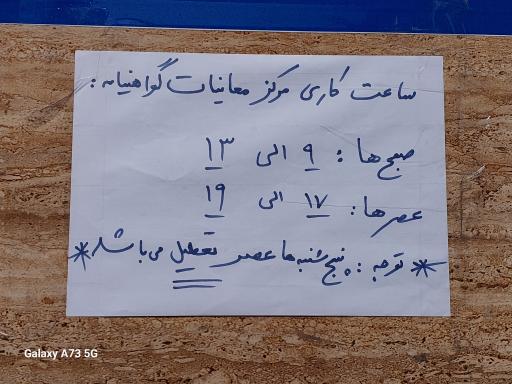 ساعت کاری مرکز معاینات گواهینامه :
صبح ها : ۹ الی ۱۳
عصر ها : ۱۷ الی ۱۹
* توجه : پنج شنبه ها عصر تعطیل می باشد *
Galaxy A73 5G